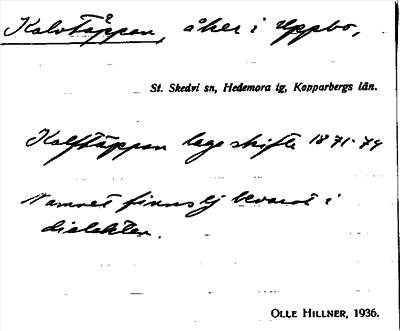 Kalvtåppan, åker i Uppbo,
St. Skedvi sn, Hedemora tg, Kopparbergs län.
Kalftäppan laga skifte 1871-74
Namnet finns ej bevarat i
dialekten.
OLLE HILLNER, 1936.